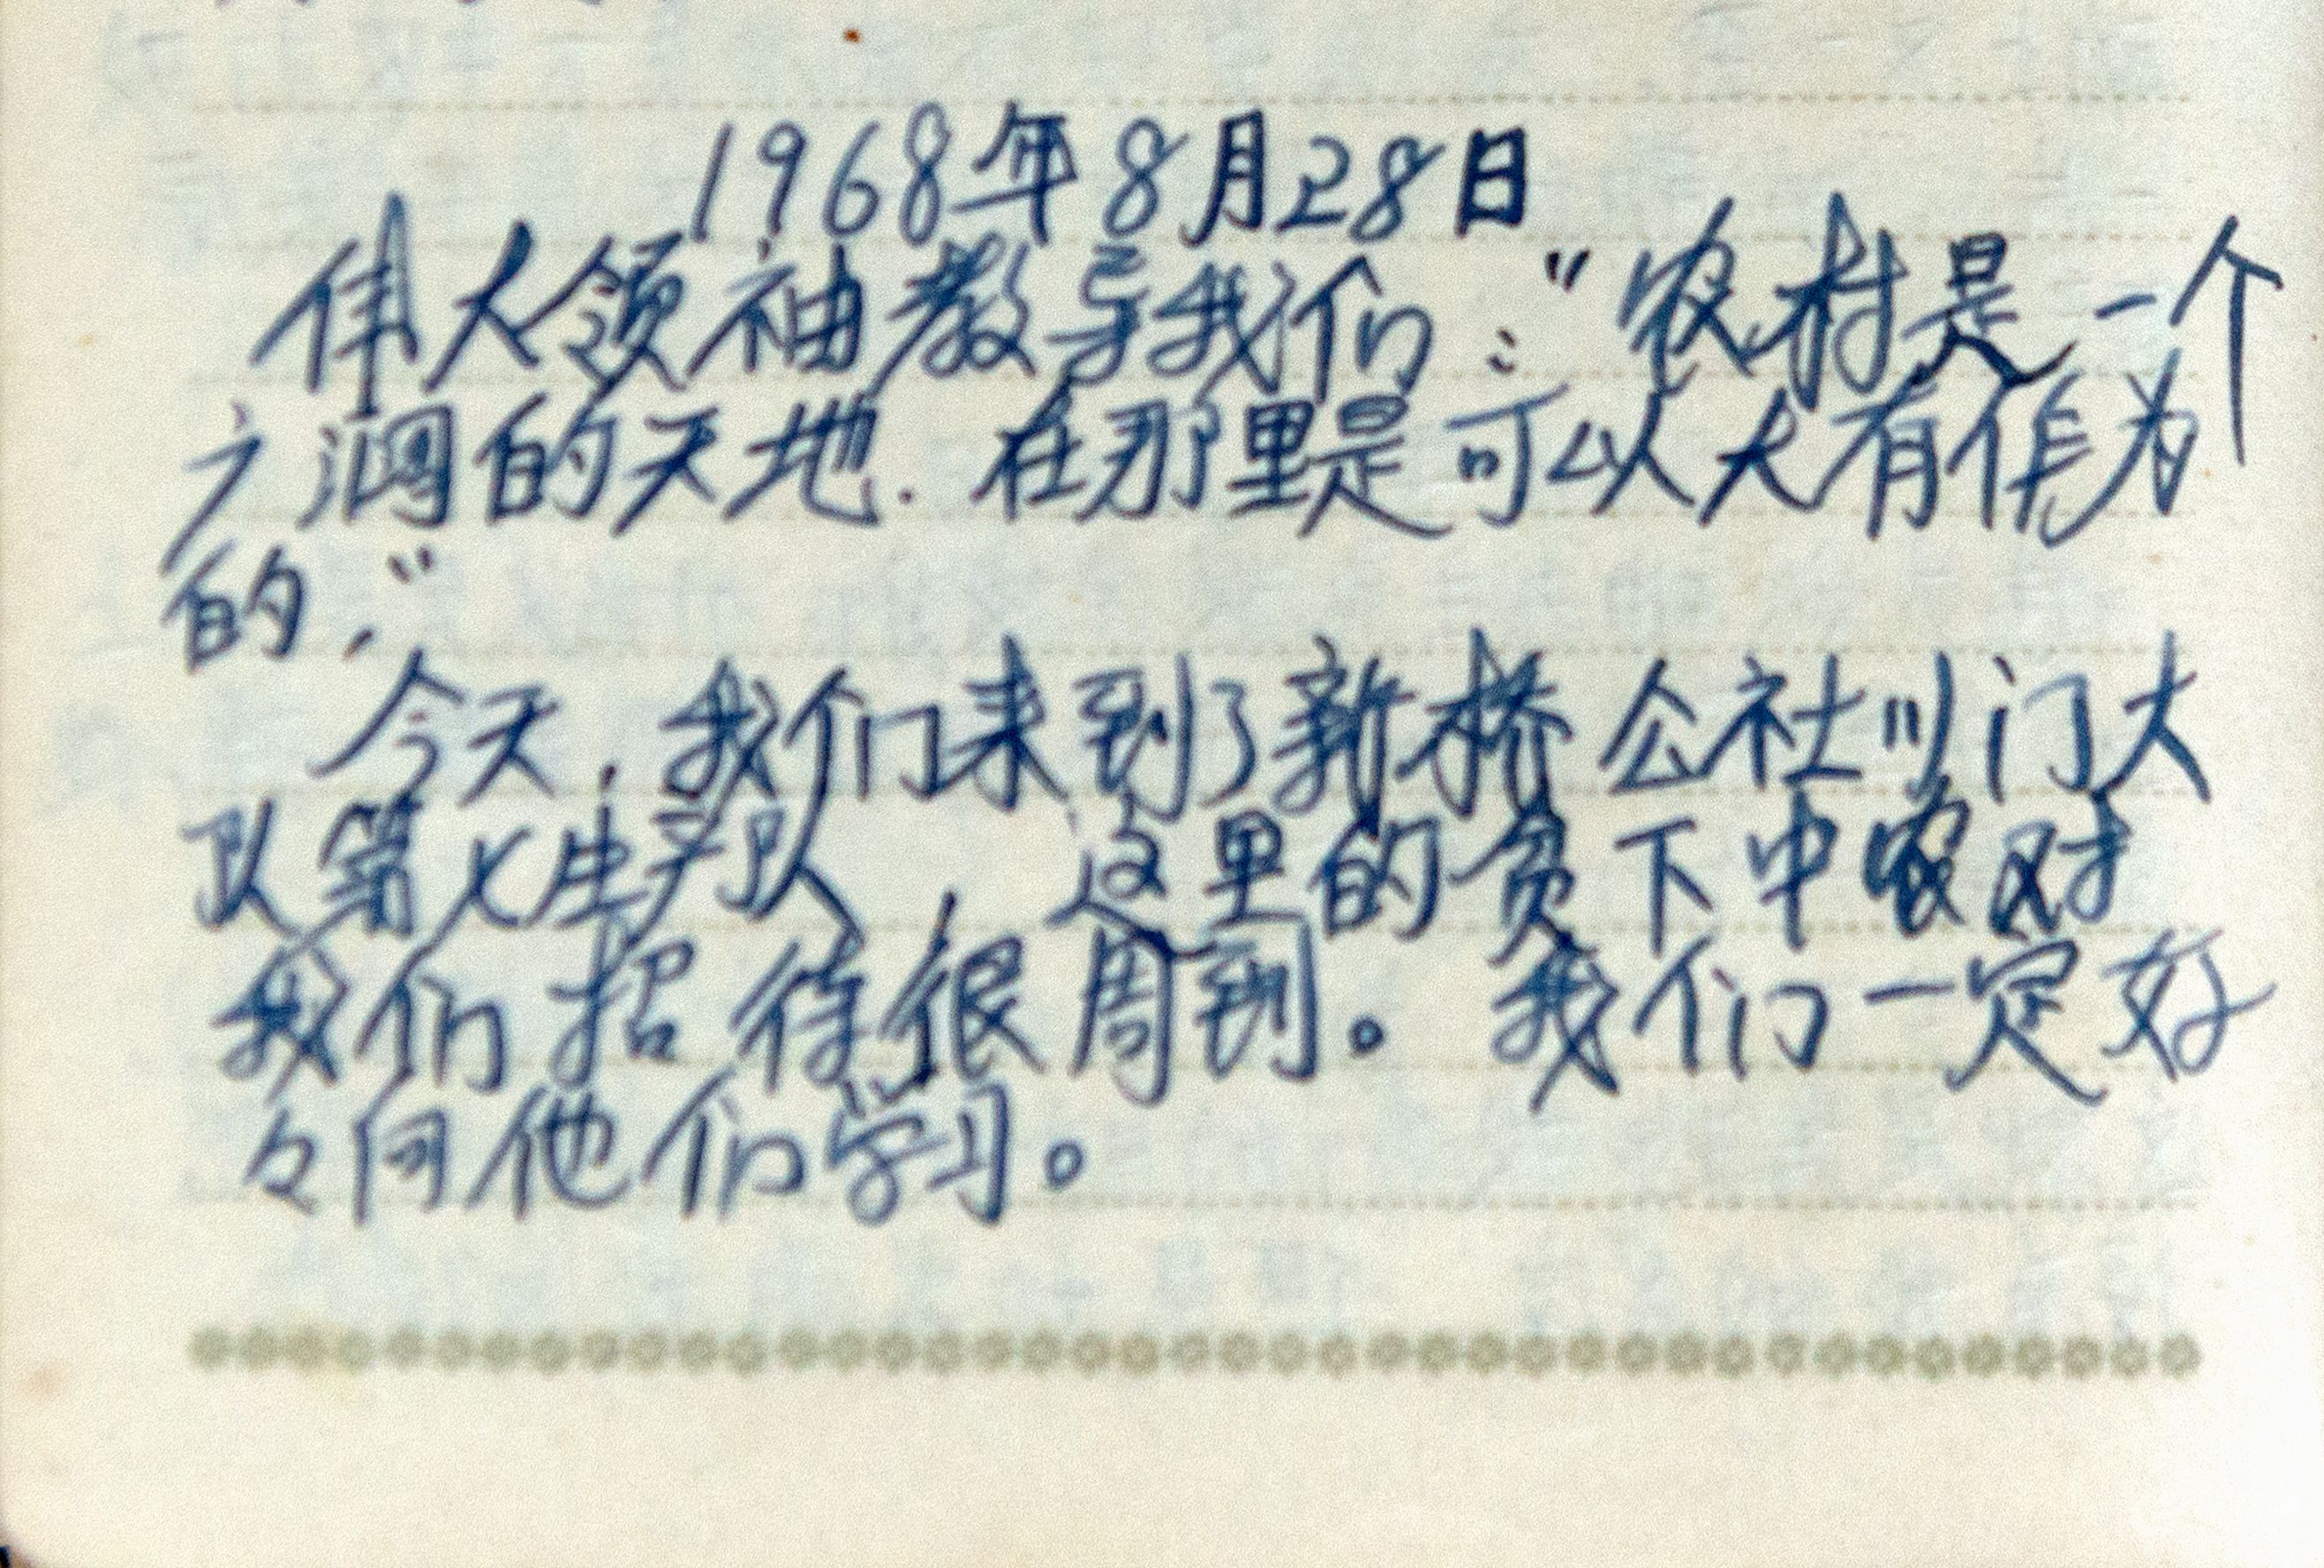 1968年8月28日
伟大领袖教导我们："农村是一个
广阔的天地.在那里是可以大有作为
的."
今天,我们来到了新桥公社川门大
队第七生产队 这里的贫下中农对
我们招待很周到。我们一定好
々向他们学习。